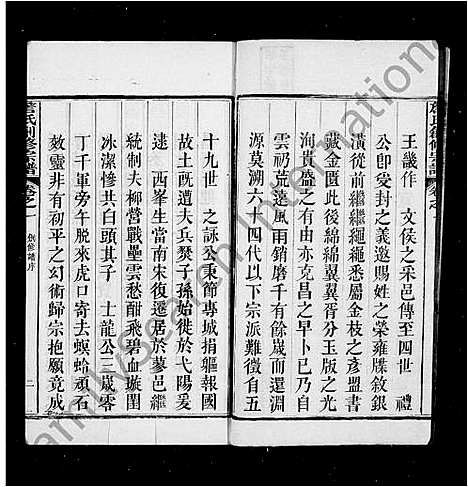 王畿作　文侯之采邑傳至四世　禮
公卽受封之義遂賜姓之榮雍牒敘銀
潢從前繼繼繩繩悉屬金枝之彥盟書
藏金匱此後綿綿翼翼胥分玉版之光
洵貴盛之有由亦克昌之早卜已乃自
雲礽荒遠風雨銷磨千有餘歲而還淵
源莫溯六十四代以下宗派難徵自五
十九世　之詠公秉節專城捐軀報國
故且遭夫兵燹子孫始徙於弋陽爰
逮　西峯生當南宋復遷居於蓼邑繼
統制夫柳營戰壘雲愁酣飛碧血璇閨
冰潔慘共白頭其子　士龍公三歲零
丁千軍旁午脫來虎口寄去螟蛉頑石
效靈非有初平之幻術歸宗抱願竟成
詹氏創修宗譜　卷之一　創修譜序　二